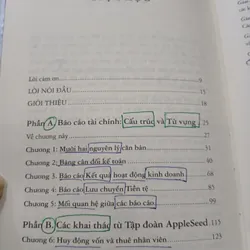 Lời cảm ơn 9
LỜI NÓI ĐẦU 11
GIỚI THIỆU 18
Phần A. Báo cáo tài chính: Cấu trúc và Từ vựng 25
Về chương này
Chương 1: Mười hai nguyên lý căn bản
Chương 2: Bảng cân đối kế toán
Chương 3: Báo cáo Kết quả hoạt động kinh doanh
Chương 4: Báo cáo Lưu chuyển Tiền tệ
Chương 5: Mối quan hệ giữa các báo cáo 99
Phần B. Các khai thác từ Tập đoàn AppleSeed
Chương 6: Huy động vốn và thuê nhân viên 125